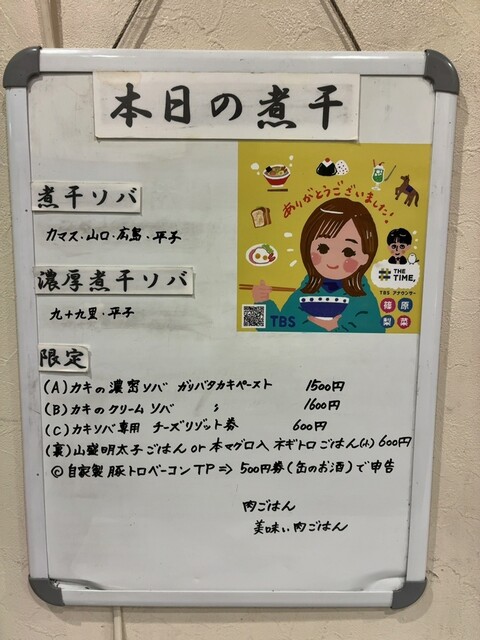 本日の煮干
煮干ソバ
カマス・山口・広島・平子
濃厚煮干ソバ
九十九里・平子
ありがとうございました!
THE TIME,
TBS アナウンサー
篠原
梨菜
TBS
限定
(A) カキの濃密ソバ ガリバタカキペースト 1500円
(B) カキのクリームソバ 〃 1600円
(C) カキソバ専用 チーズリゾット券 600円
(裏) 山盛明太子ごはん or 本マグロ入ネギトロごはん(小) 600円
◎自家製豚トロベーコンTP⇒500円券(缶のお酒)で申告
肉ごはん
美味い肉ごはん